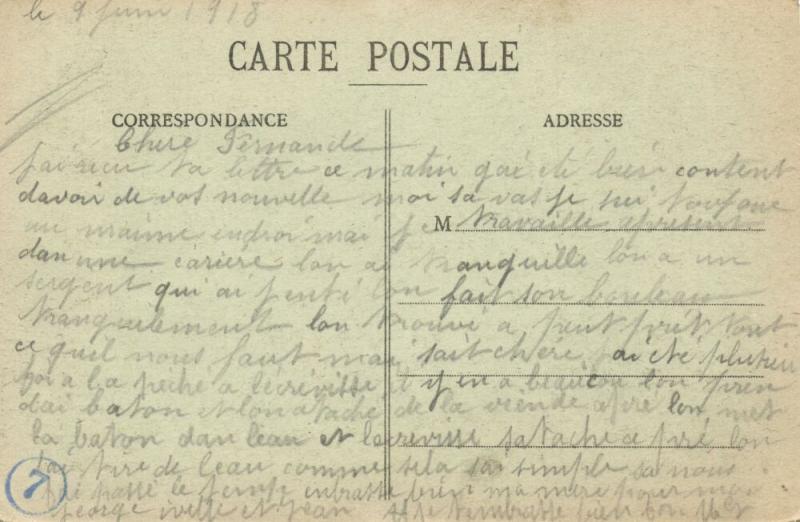 le 9 juin 1918
CARTE POSTALE
CORRESPONDANCE
ADRESSE
Chere Fernande
jai recu ta lettre ce matin qai été bien content
davoir de vos nouvelle moi sa vas je sui toujour
au maime endroi mai je travaille apresent
M
dan une cariere lon ai tranquille lon a un
sergent qui ai lon fait son bouleau
tranquilement lon trouve a peut pret tout
ce quil nous faut mai sait chere jai été plusieu
foi a la peche a lecrevisse et il y en a beaucou lon pren
dai baton et lon atache de la viende apré lon met
la baton dan leau et lecrevisse satache apré lon
lai tire de leau comme sela sai simple sa nous
fai passé le temp embrasse bien ma mere pour moi
george et jean je tembrasse bien
7